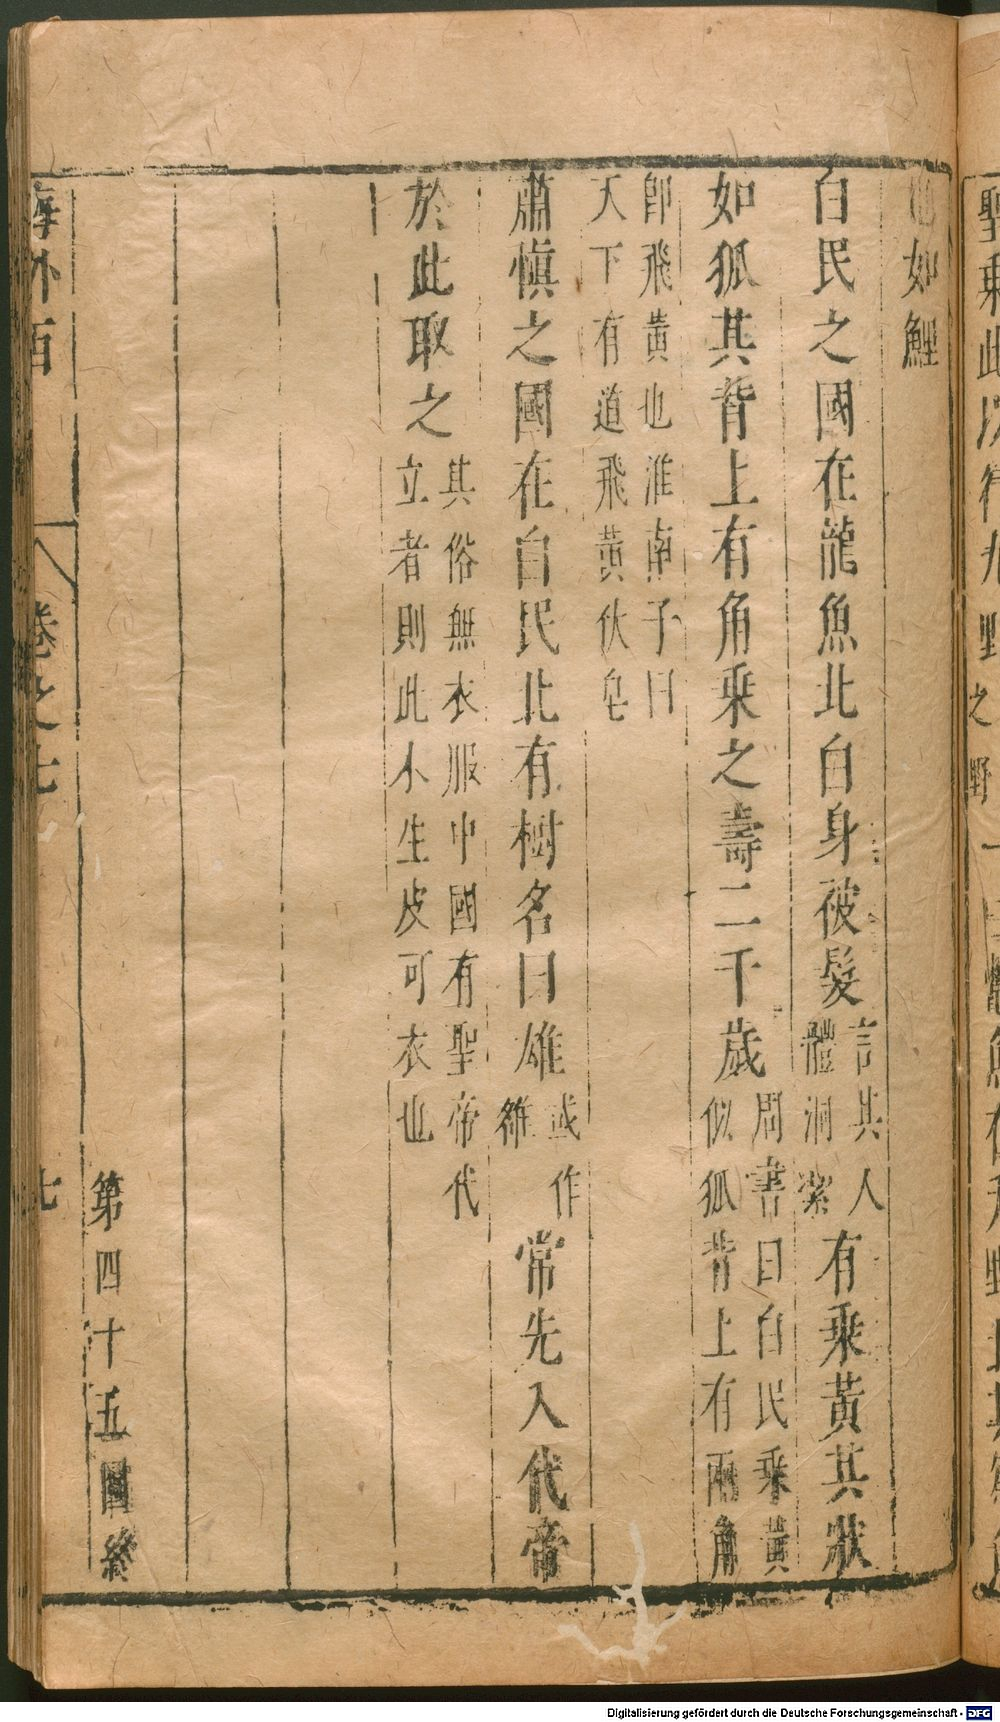 聖乘此以行九野之野一曰鱉魚在夭野北其
也如鯉
白民之國在龍魚北白身被髮言其人體洞有乘黃其狀
如狐其背上有角乘之壽二千歲周書曰白民乘黃似狐背上有兩角
即飛黃也淮南子曰天下有道飛黃伏皂
肅慎之國在白民北有樹名曰雄或作雒常先入代帝
於此取之其俗無衣服中國有聖帝代立者則此木生皮可衣也
第四十五圖終
海外西 卷之七 七
Digitalisierung gefördert durch die Deutsche Forschungsgemeinschaft - DFG